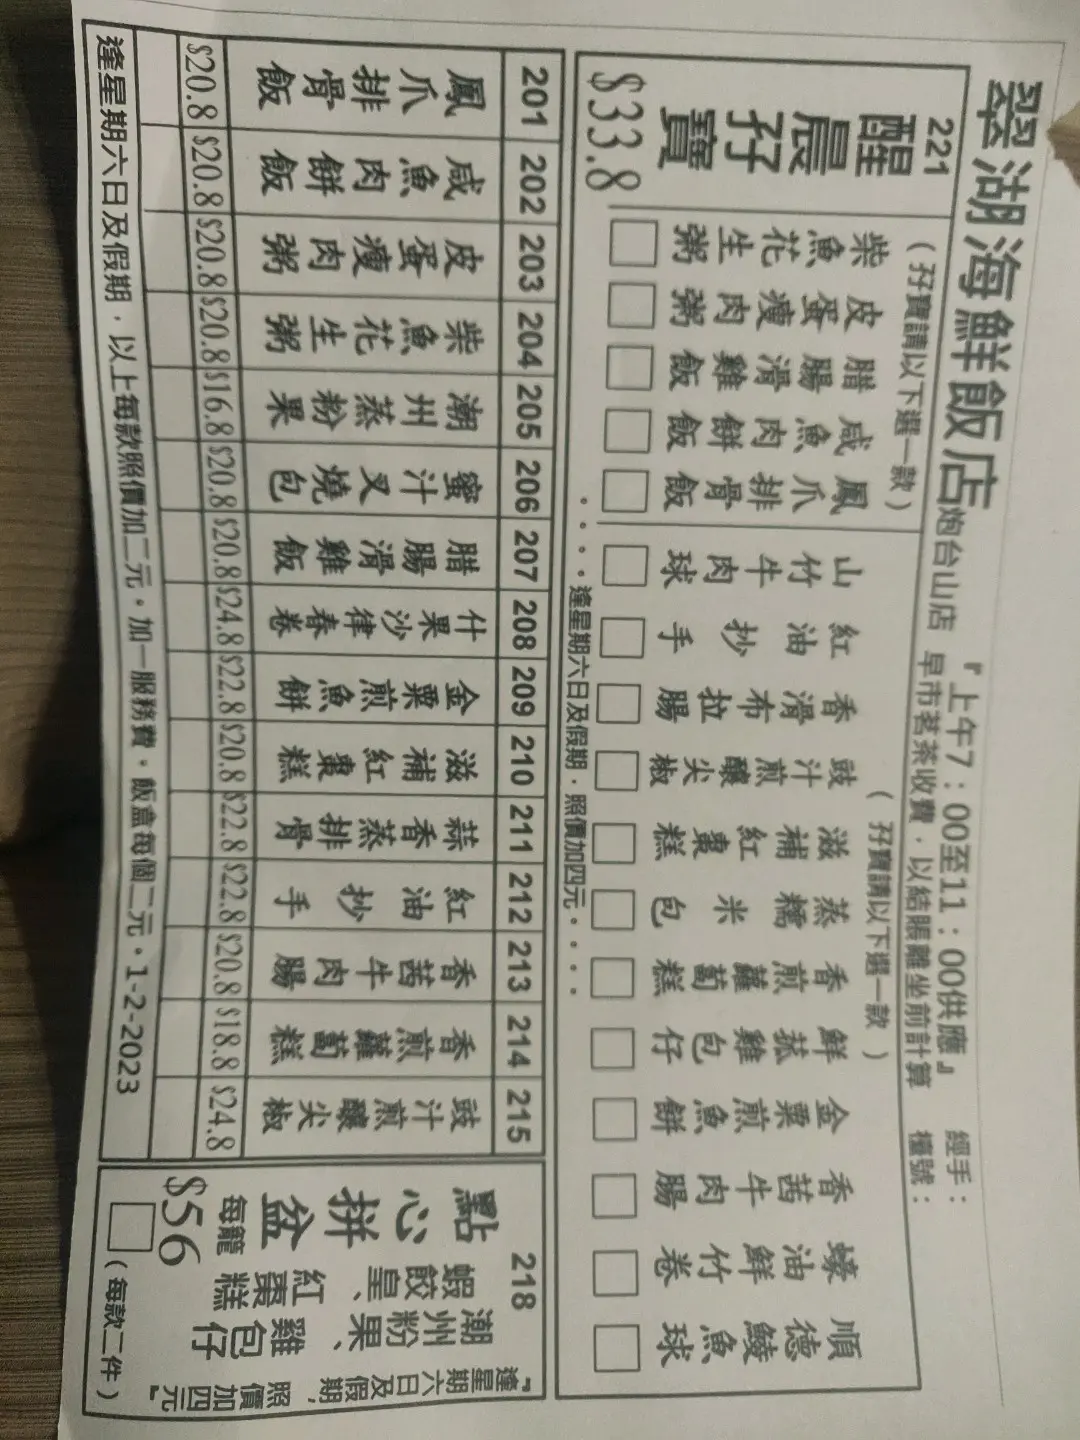 翠湖海鮮飯店炮台山店
『上午7：00至11：00供應』
早市茗茶收費，以結賬離坐前計算
經手：
檯號：
221
醒晨孖寶
$33.8
（孖寶請以下選一款）
柴魚花生粥
皮蛋瘦肉粥
腊腸滑雞飯
咸魚肉餅飯
鳳爪排骨飯
（孖寶請以下選一款）
山竹牛肉球
紅油抄手
香滑布拉腸
豉汁煎釀尖椒
滋補紅棗糕
蒸糯米包
香煎蘿蔔糕
鮮菰雞包仔
金粟煎魚餅
香茜牛肉腸
蠔油鮮竹卷
順德鯪魚球
．．．．逢星期六日及假期，照價加四元。．．．
201 鳳爪排骨飯 $20.8
202 咸魚肉餅飯 $20.8
203 皮蛋瘦肉粥 $20.8
204 柴魚花生粥 $20.8
205 潮州蒸粉果 $16.8
206 蜜汁叉燒包 $20.8
207 腊腸滑雞飯 $20.8
208 什果沙律春卷 $24.8
209 金粟煎魚餅 $22.8
210 滋補紅棗糕 $20.8
211 蒜香蒸排骨 $22.8
212 紅油抄手 $22.8
213 香茜牛肉腸 $20.8
214 香煎蘿蔔糕 $18.8
215 豉汁煎釀尖椒 $24.8
逢星期六日及假期，以上每款照價加二元。加一服務費。飯盒每個二元。1-2-2023
218
點心拼盆
每籠
$56
蝦餃皇、紅棗糕
潮州粉果、雞包仔
『逢星期六日及假期，照價加四元』
（每款二件）